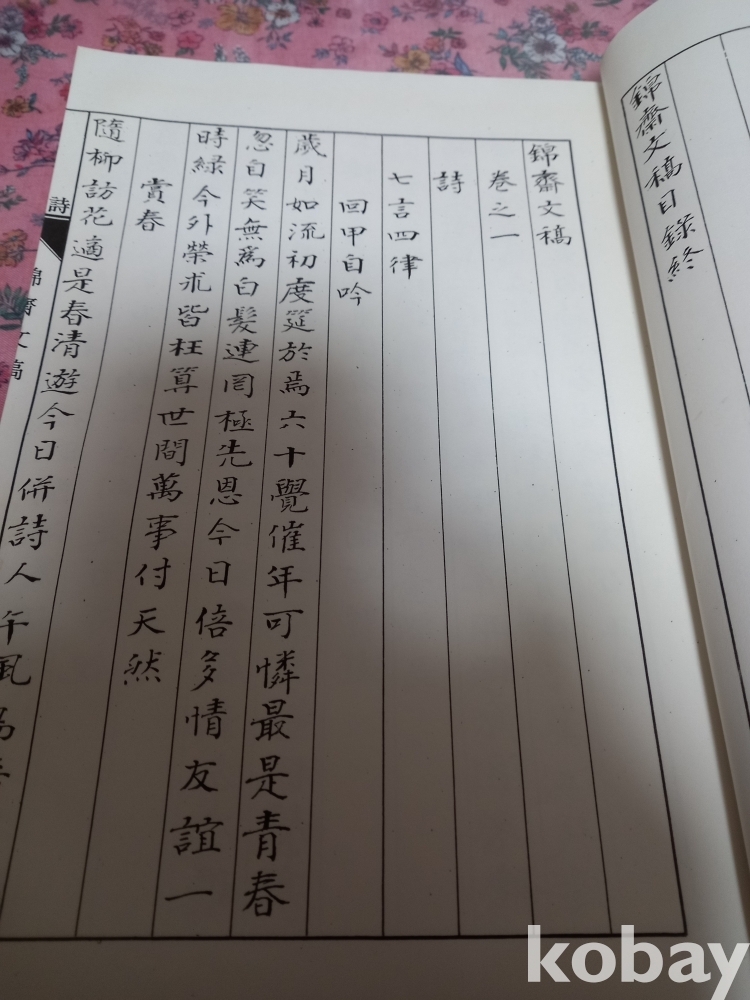 錦齋文稿目錄終
錦齋文稿
卷之一
詩
七言四律
回甲自吟
歲月如流初度筵於焉六十覺催年可憐最是青春
忽自笑無爲白髮連罔極先恩今日倍多情友誼一
時緣分外榮求皆枉算世間萬事付天然
賞春
隨柳訪花適是春清遊今日併詩人午風
詩
錦齋文稿
kobay